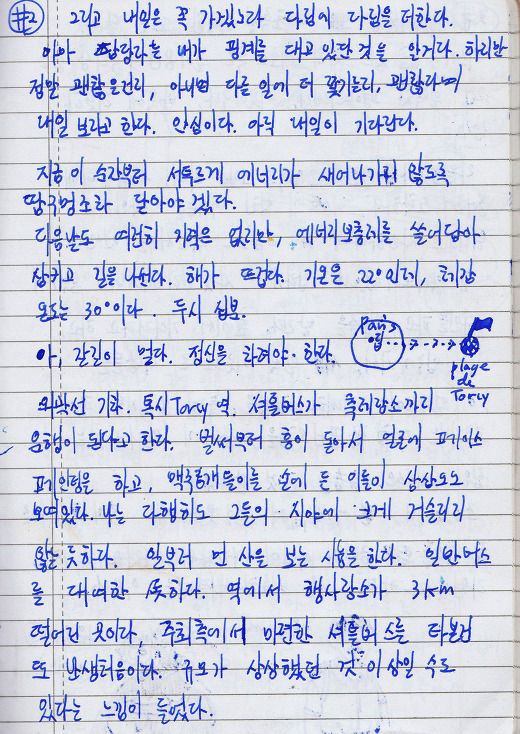 #2 그리고 내일은 꼭 가겠노라 다짐에 다짐을 더한다.
이마 핑계를 대고 있단 것을 안거다. 하지만
정말 괜찮은건지, 아니면 다른 일에 더 꽂기는지, 괜찮다며
내일 보라고 한다. 안심이다. 아직 내일이 기다린다.
지금 이 순간부터 서투르게 에너지가 새어나가지 않도록
땀구멍조차 닫아야 겠다.
다음날도 여전히 기력은 없지만, 에너지보충제를 쓸어담아
삼키고 길을 나선다. 해가 뜨겁다. 기온은 22°인데, 체감
온도는 30°이다. 두시 십분.
아, 갈길이 멀다. 정신을 차려야 한다.
Paris 집 ····> ··> ··> plage de Torcy
외곽선 기차. 혹시 Torcy 역. 셔틀버스가 축제장소까지
운행이 된다고 한다. 벌써부터 흥이 돋아서 얼굴에 페이스
페인팅을 하고, 맥주병들을 손에 든 이들이 삼삼오오
모여있다. 나는 다행히도 그들의 시야에 크게 거슬리지
않는 듯하다. 일부러 먼 산을 보는 시늉을 한다. 일반버스
를 대여한 듯하다. 역에서 행사장소가 3km
떨어진 곳이다, 주최측에서 마련한 셔틀버스를 타보긴
또 난생처음이다. 규모가 상상했던 것 이상일 수도
있다는 느낌이 들었다.